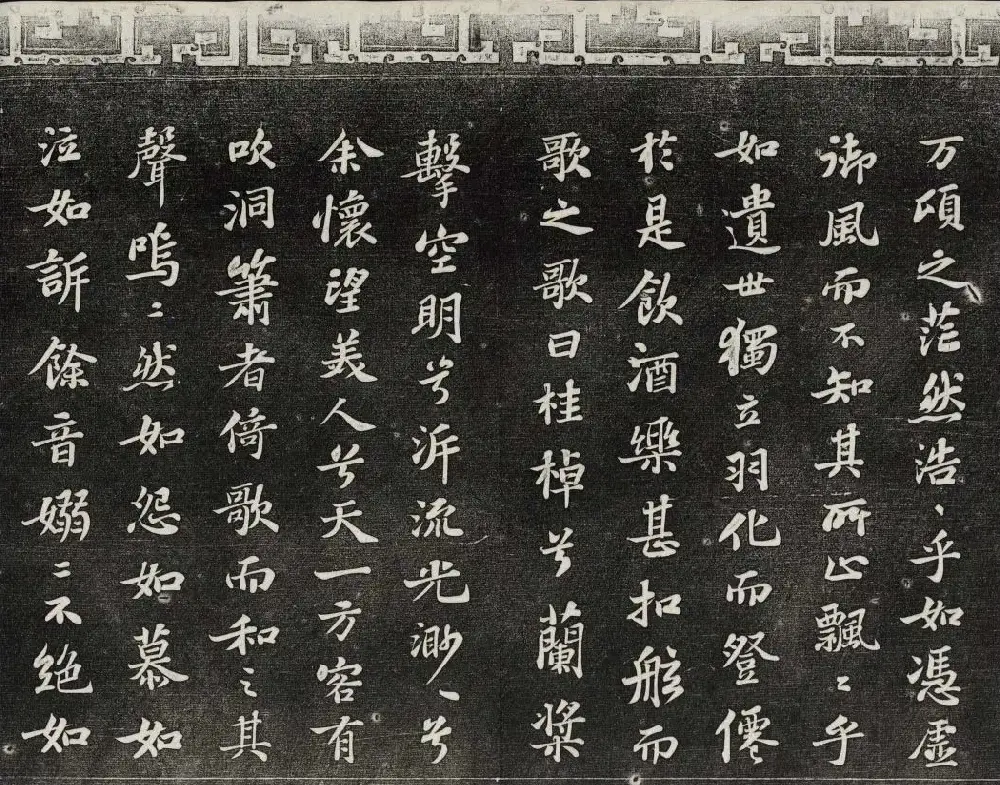 万頃之茫然浩〻乎如憑虛
御風而不知其所止飄〻乎
如遺世獨立羽化而登僊
於是飲酒樂甚扣舷而
歌之歌曰桂棹兮蘭槳
擊空明兮泝流光渺〻兮
余懷望美人兮天一方客有
吹洞簫者倚歌而和之其
聲嗚〻然如怨如慕如
泣如訴餘音嫋〻不絕如